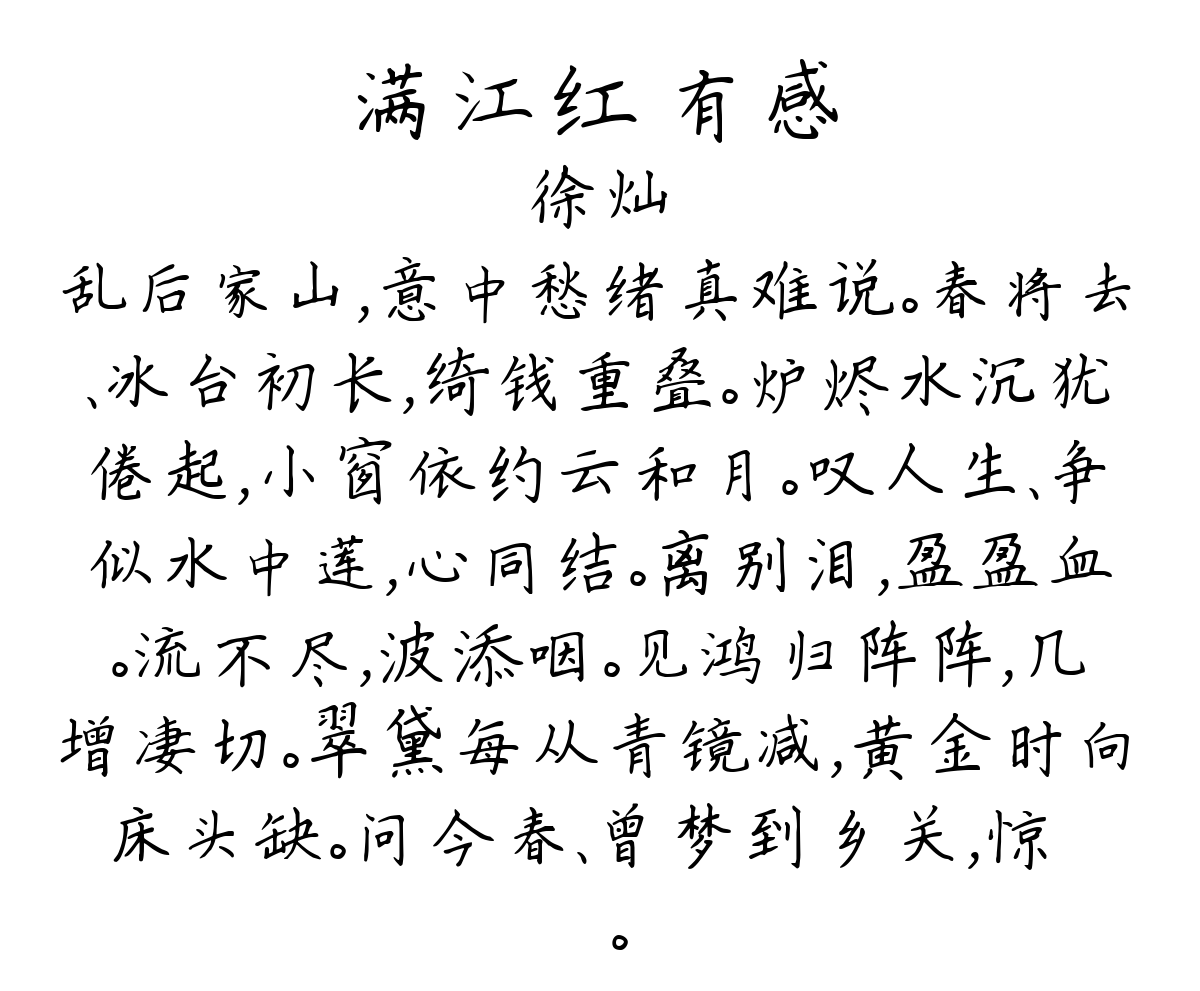 满江红 有感
徐灿
乱后家山,意中愁绪真难说。春将去
、冰台初长,绮钱重叠。炉烬水沉犹
倦起,小窗依约云和月。叹人生、争
似水中莲,心同结。离别泪,盈盈血
。流不尽,波添咽。见鸿归阵阵,几
增凄切。翠黛每从青镜减,黄金时向
床头缺。问今春、曾梦到乡关,惊
。